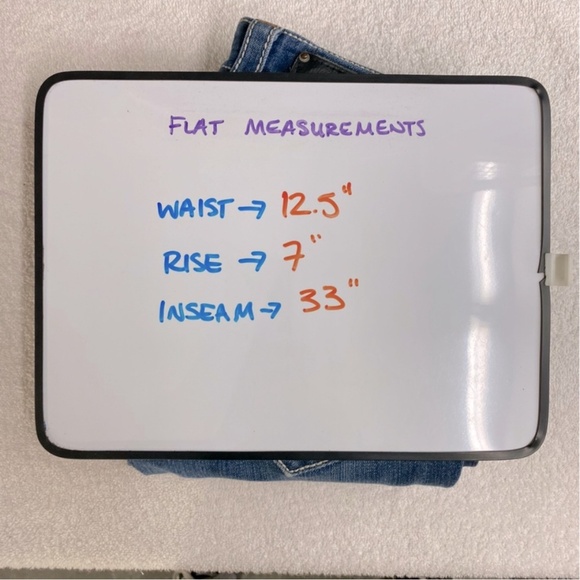 FLAT MEASUREMENTS
WAIST → 12.5"
RISE → 7"
INSEAM → 33"